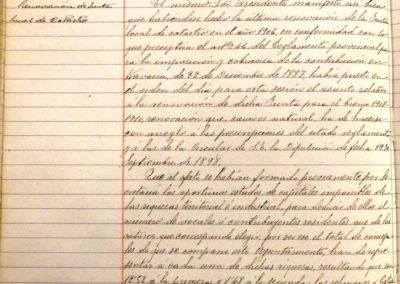 Renovación de Junta
local de Catastro
El mismo Sr. Presidente manifestó su bien
que habiéndose hecho la última renovación de la Junta
local de catastro en el año 1906, en conformidad con lo
que preceptúa el artº 66 del Reglamento provincial pa
ra la imposición y cobranza de la contribución en
Navarra, de 22 de Diciembre de 1887, había puesto en
el orden del día para esta sesión el asunto relativo
a la renovación de dicha Junta para el bienio 1908-
1910, renovación que, como es natural, ha de hacerse
con arreglo a las prescripciones del citado reglamento
y a las de la Circular de S.E. la Diputación de fecha
Septiembre de 1898.
Que al efecto se habían formado previamente por se
cretaría los oportunos estados de capitales imponibles de
las riquezas territorial é industrial, para deducir de ellos el
número de vocales ó contribuyentes residentes que de los
catorce que corresponde elegir, por ser ese el total de conceja
les de que se compone este Ayuntamiento, han de repre
sentar a cada una de dichas riquezas, resultando que son
a la primera y 1'48 a la segunda